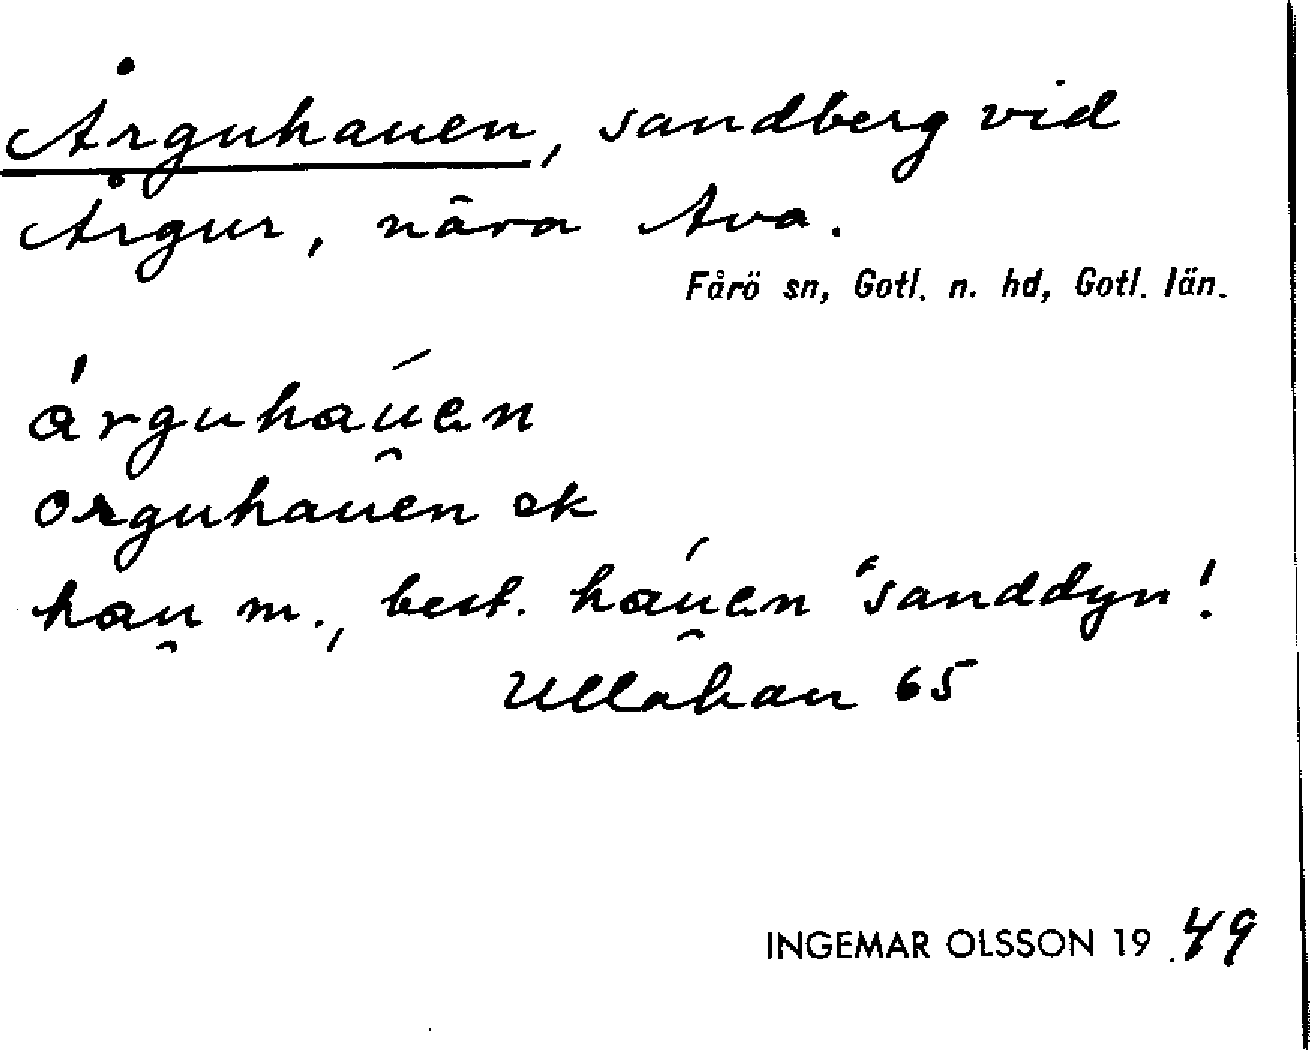 Årguhauen, sandberg vid
Årgur, nära Ava.
Fårö sn, Gotl. n. hd, Gotl. län.
árguhau̯én
orguhauen ek
hau̯ m., best. háu̯en "sanddyn".
Ullahau 65
INGEMAR OLSSON 19.49